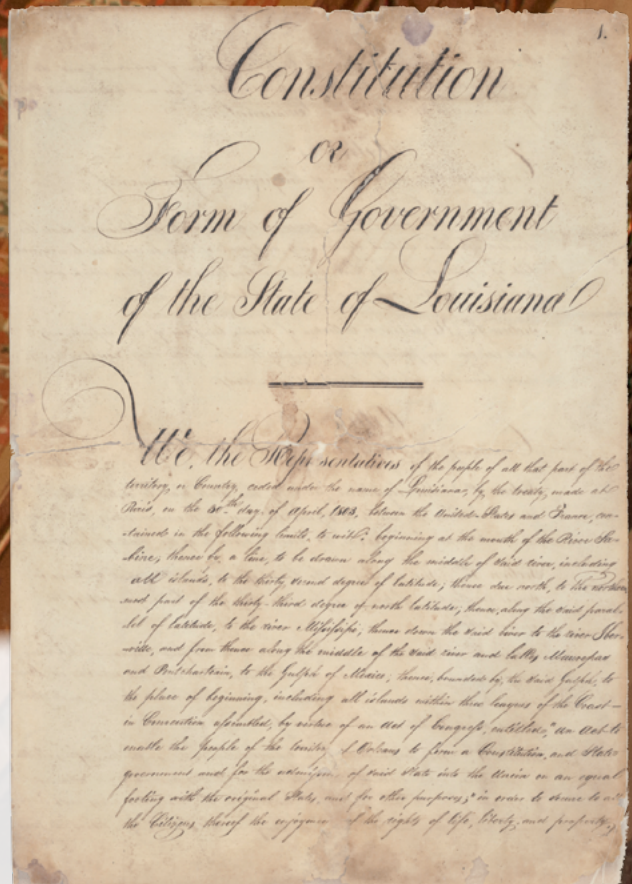 1.
Constitution
or
Form of Government
of the State of Louisiana
We, the Representatives of the people of all that part of the
territory, or Country, ceded under the name of Louisiana, by the treaty, made at
Paris, on the 30th day of April, 1803, between the United-States and France, con-
tained in the following limits, to wit: beginning at the mouth of the River Sa-
bine, thence by a line, to be drawn along the middle of said river, including
all islands, to the thirty second degree of latitude; thence due north, to the Northern
most part of the thirty-third degree of north latitude; thence, along the said paral-
lel of latitude, to the river Missisippi; thence down the said river to the river Iber-
ville, and from thence along the middle of the said river and lakes, Maurepas
and Pontchartrain, to the Gulph of Mexico; thence, bounded by, the said Gulph, to
the place of beginning, including all islands within three leagues of the Coast—
in Convention assembled, by virtue of an act of Congress, entitled, "an act to
enable the people of the territory of Orleans to form a Constitution, and State
government and for the admission of said state into the Union on an equal
footing with the original States, and for other purposes;" in order to secure to all
the Citizens thereof the enjoyment of the rights of life, liberty, and property,